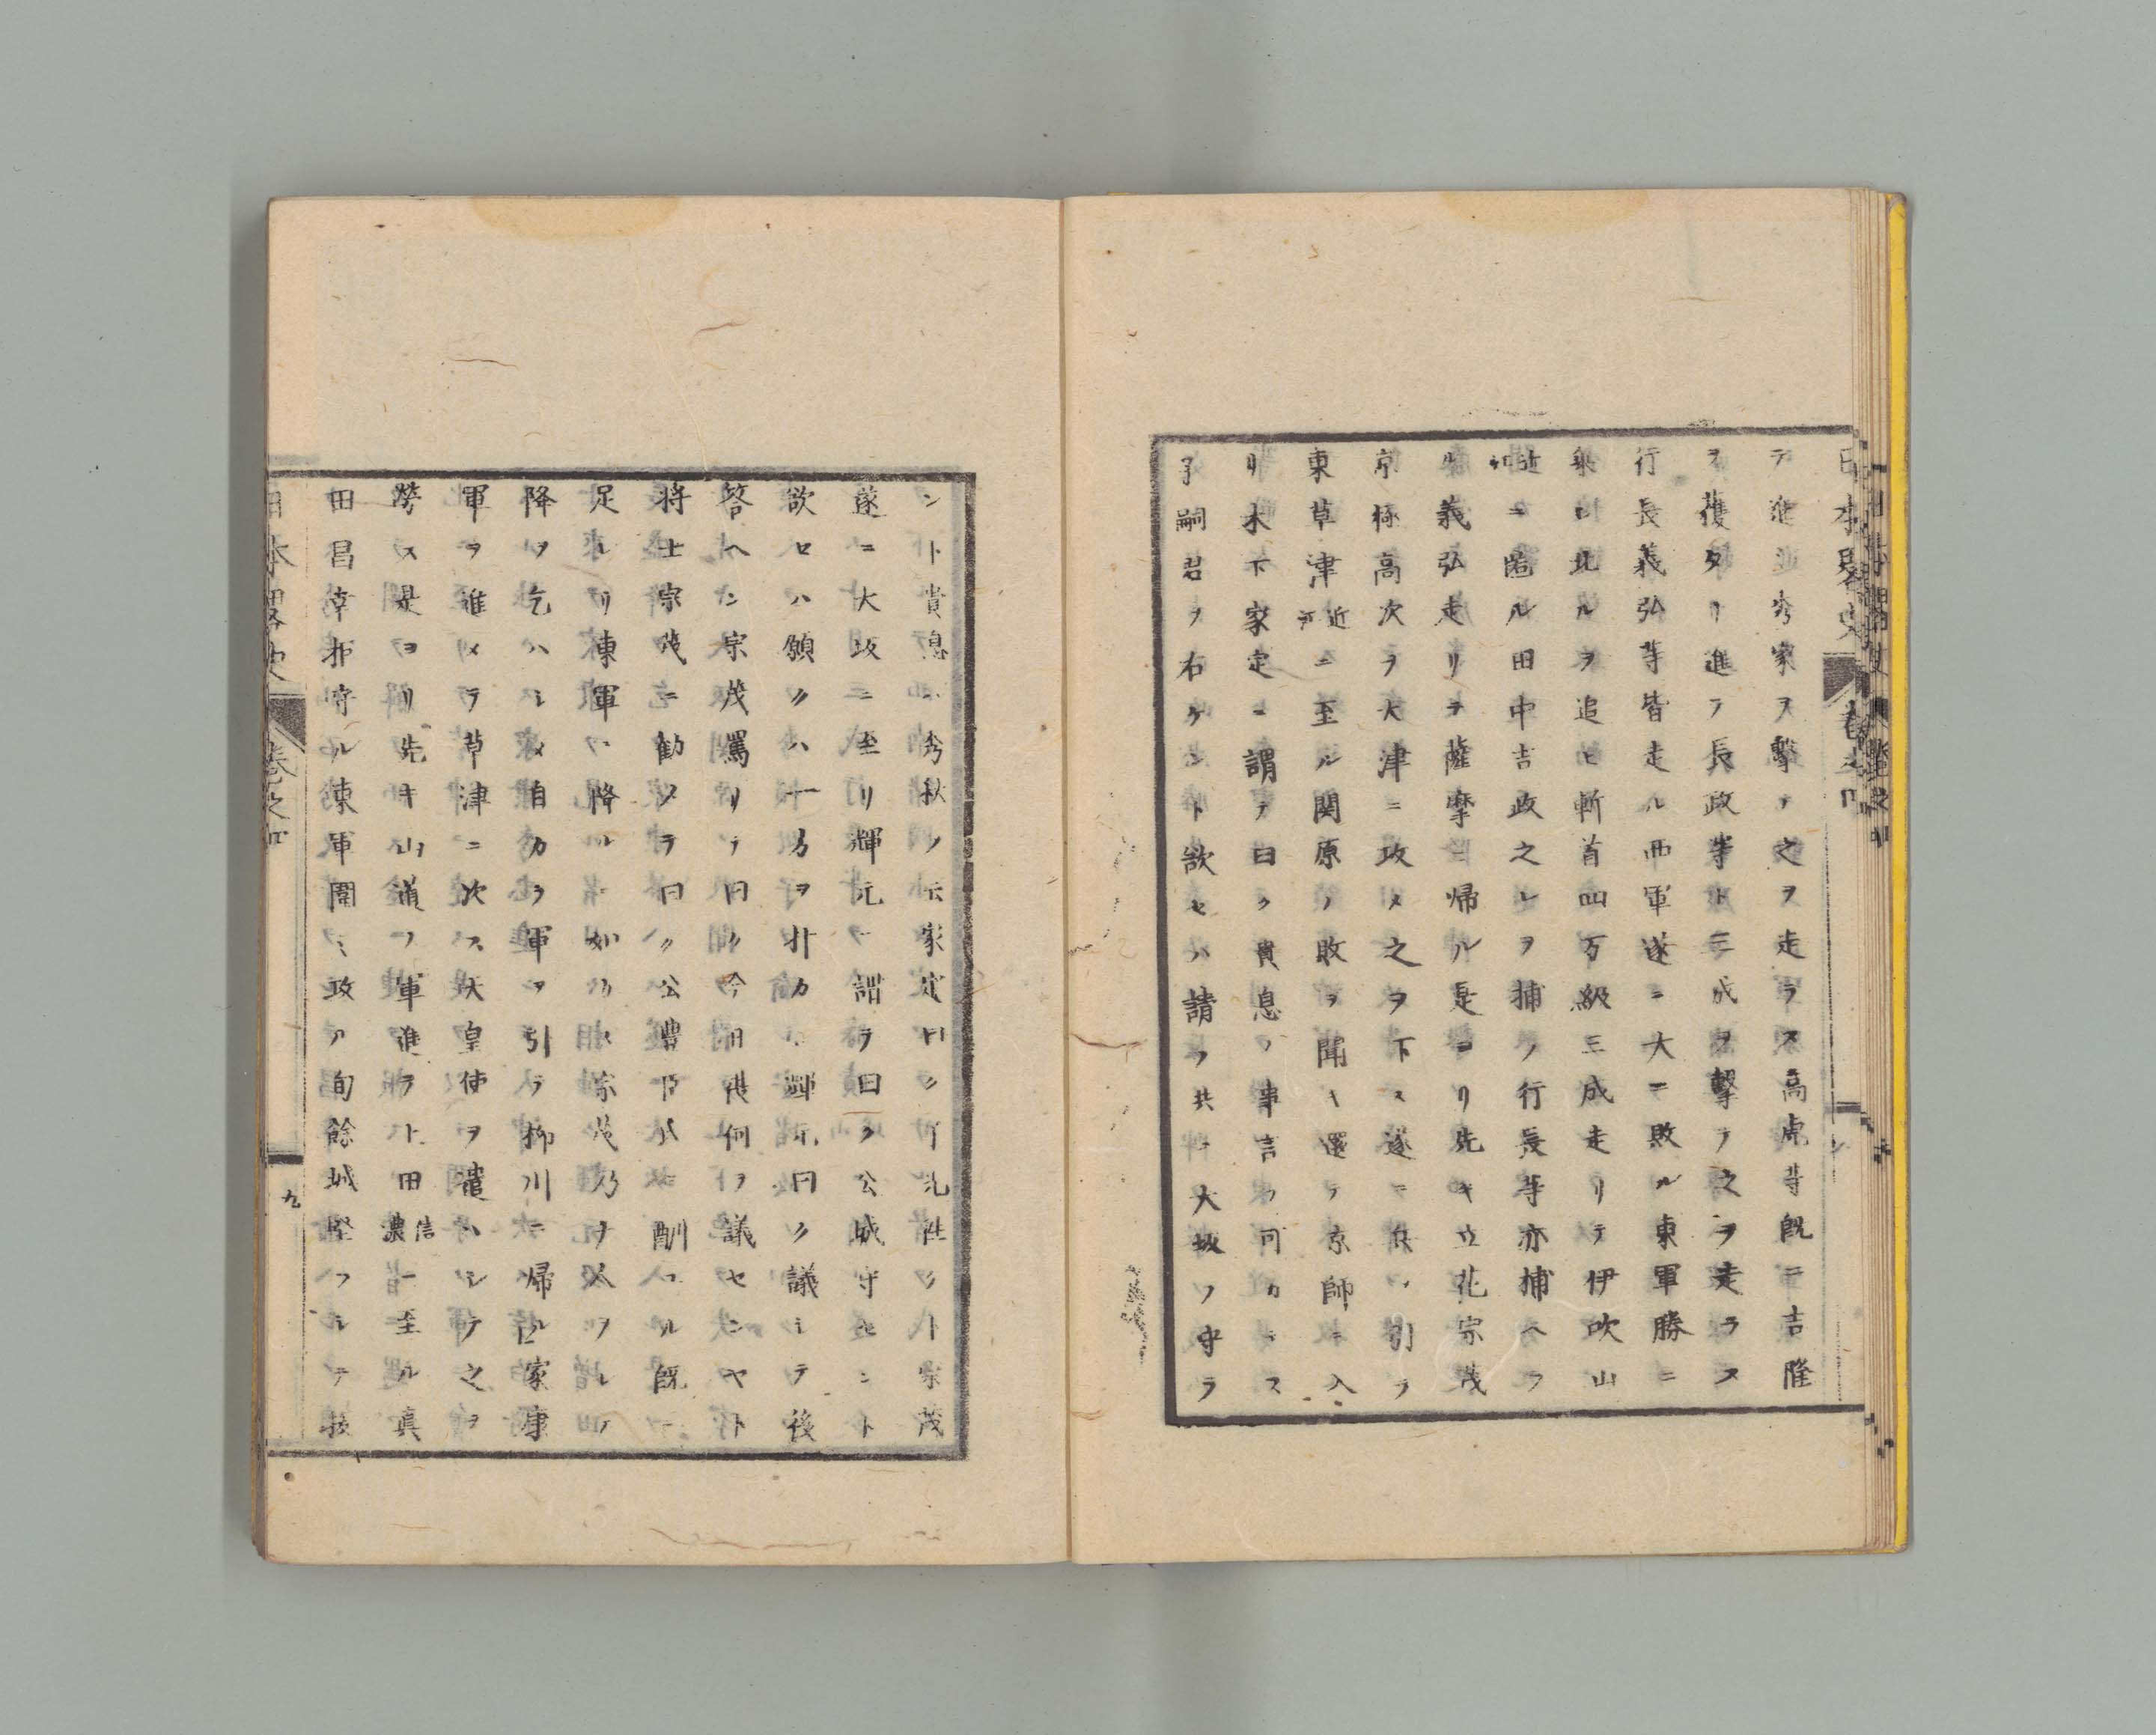 日本略史 卷之四
テ進ミ秀家ヲ撃テ之ヲ走ラス高虎等既ニ吉隆
ヲ獲タリ進テ長政等ト三成ヲ撃テ之ヲ走ラス
行長義弘等皆走ル西軍遂ニ大ニ敗ル東軍勝ニ
乗シ北ルヲ追ヒ斬首四万級三成走リテ伊吹山
近江ニ匿ル田中吉政之レヲ捕フ行長等亦捕ヘラ
ル義弘走リテ薩摩ニ帰ル是ヨリ先キ立花宗茂
京極高次ヲ大津ニ攻メ之ヲ下ス遂ニ兵ヲ引テ
東草津近江ニ至ル関原ノ敗ヲ聞キ還テ京師ニ入
リ木下家定ニ謂テ曰ク貴息ノ事言フ可カラス
子嗣君ヲ右ケント欲セハ請フ共ニ大坂ヲ守ラ
ント貴息ハ秀秋ノ家定曰ク宗茂
遂ニ大坂ニ至リ輝元ニ謂テ曰ク公城守セント
欲セハ願クハ一方ヲ輝元曰ク議シテ後
答ヘン宗茂罵リテ曰ク今日復何ヲ議センヤト
将士宗茂ニ勧メテ曰ク公豊臣氏ニ酬フル既ニ
足レリ東軍ニ降ルニ如カス宗茂乃チ人ヲシテ
降ヲ乞ハシメ自カラ軍ヲ引テ柳川ニ帰ル家康
軍ヲ進メテ草津ニ次ス天皇使ヲ遣ハシテ之ヲ
労ス是ヨリ先キ山道ノ軍進テ上田信濃ニ至ル真
田昌幸拒守ル東軍囲ミ攻ル旬餘城堅フシテ抜
日本略史 卷之四
九